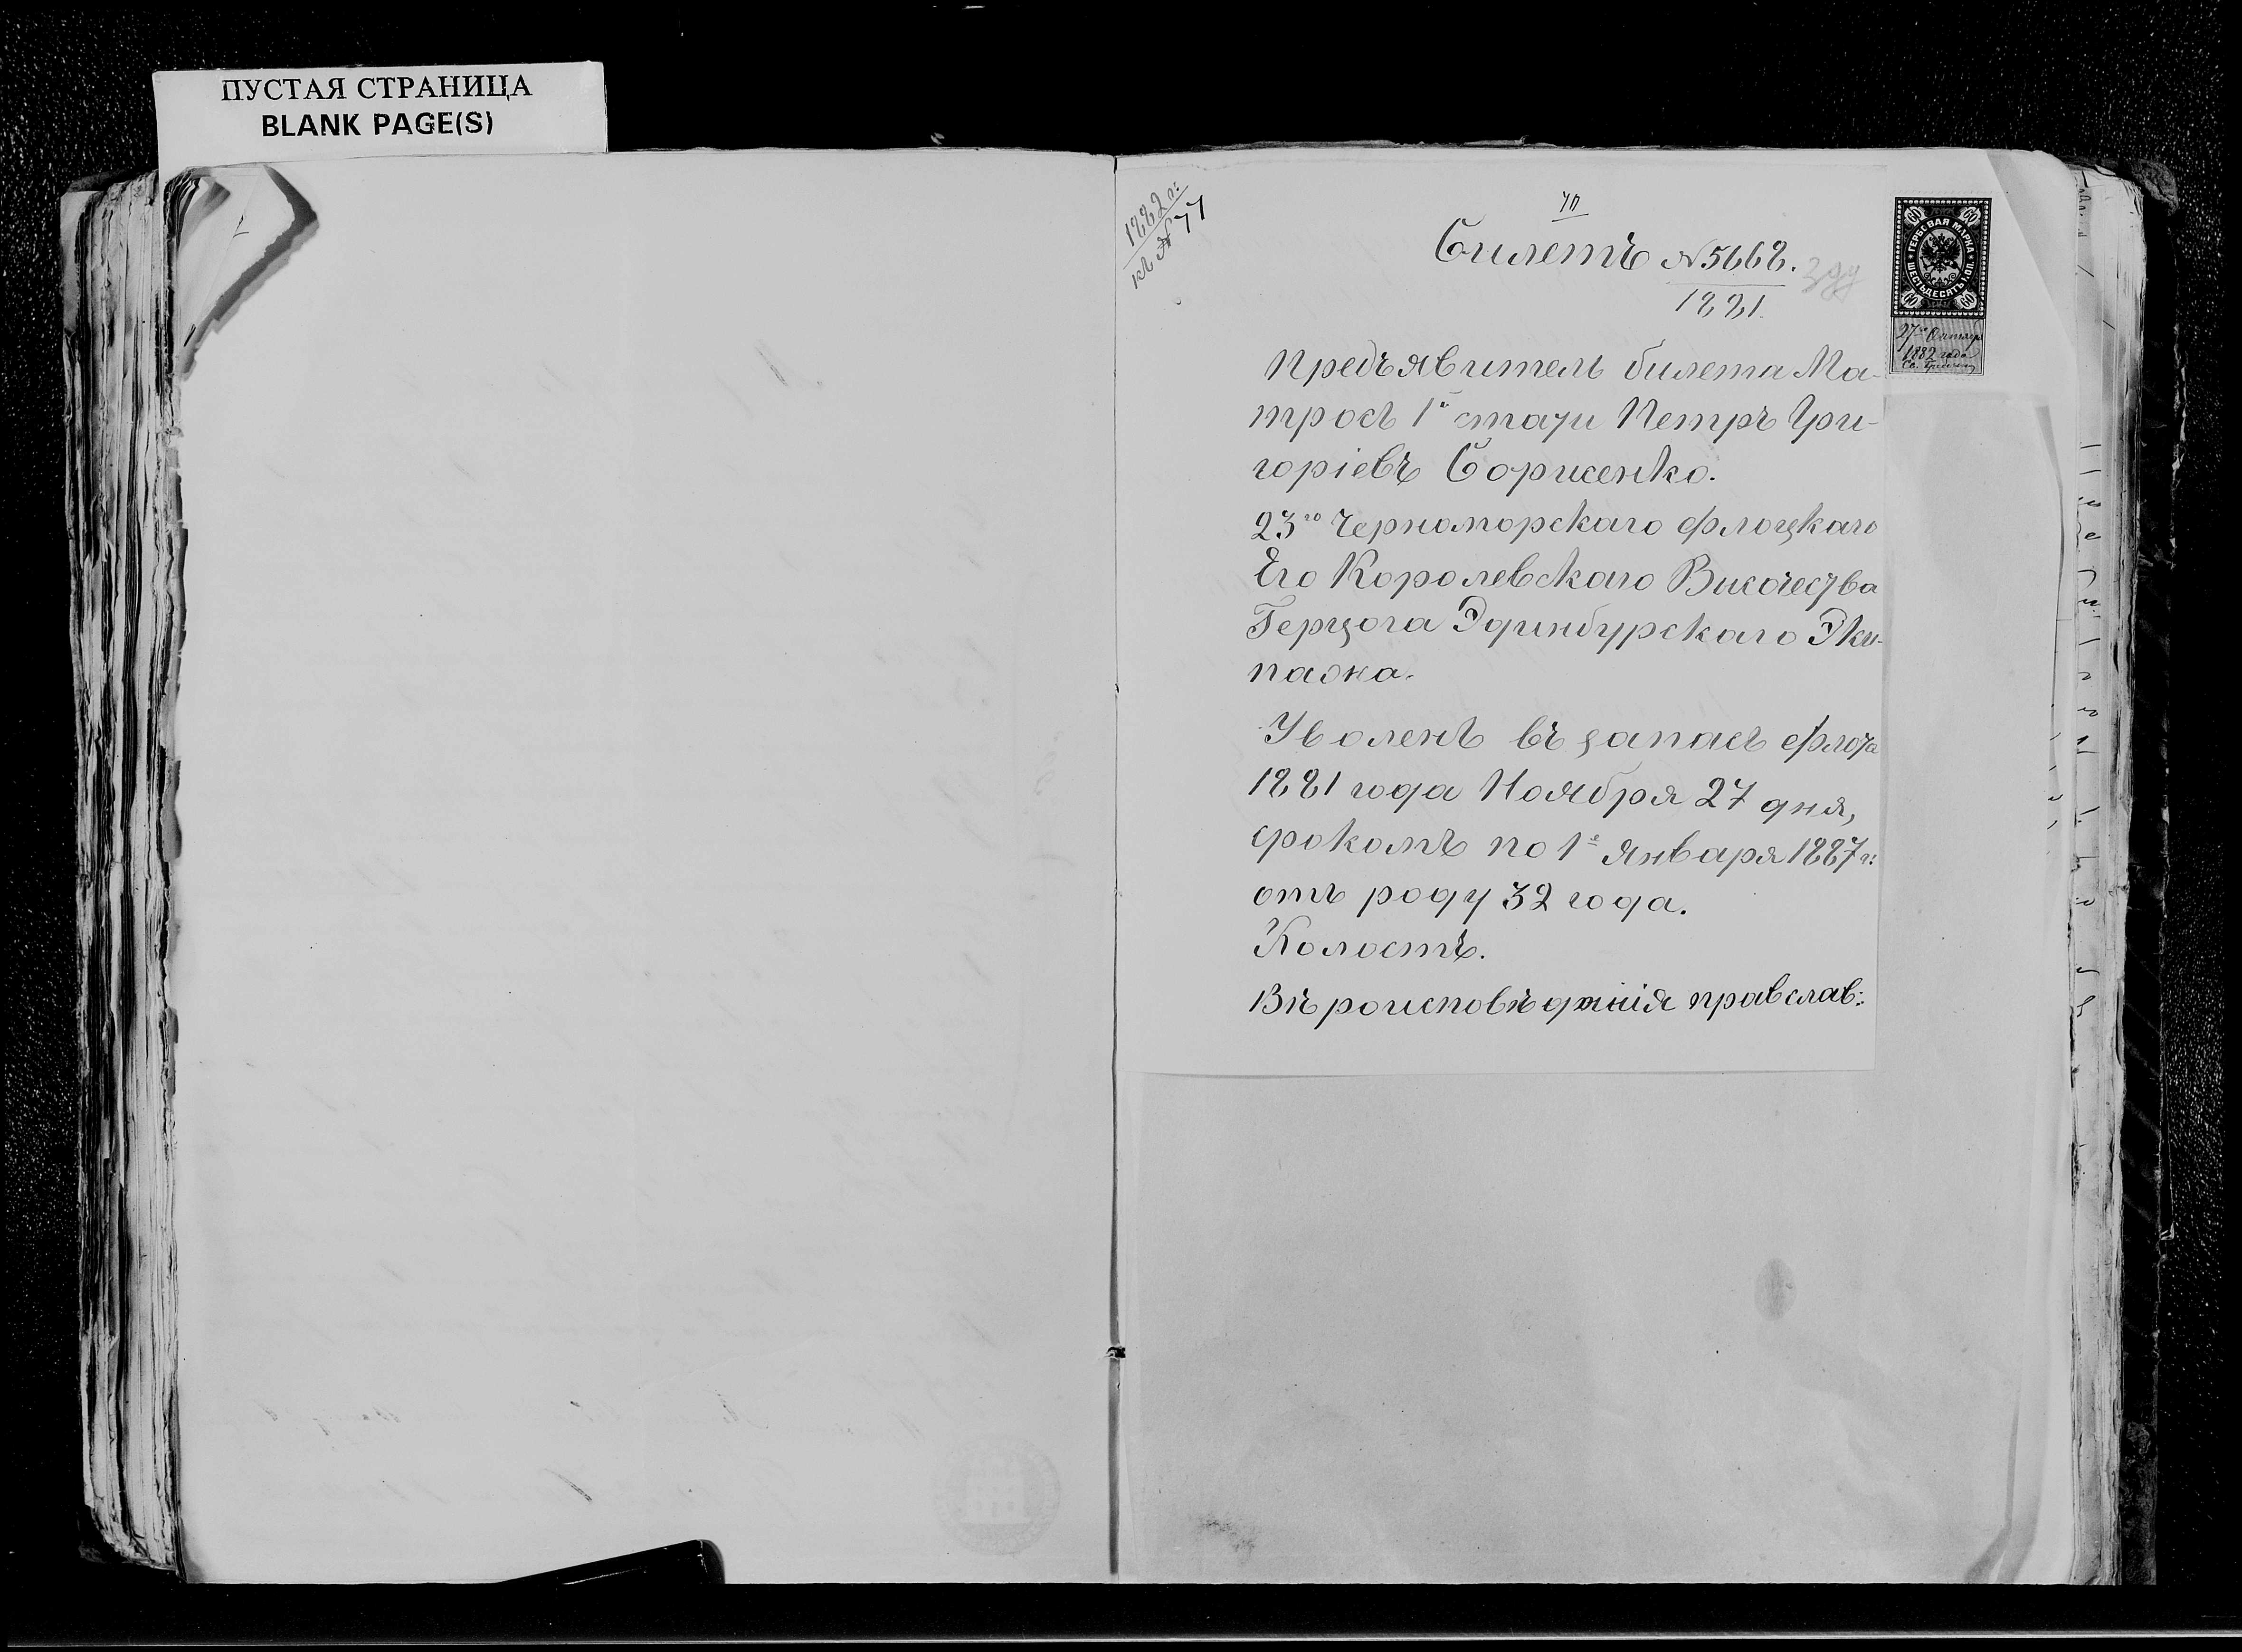 ПУСТАЯ СТРАНИЦА
BLANK PAGE(S)
1882 г:
къ № 77
Билетъ № 5668.
1881.
ГЕРБОВАЯ МАРКА
ШЕСТЬДЕСЯТЪ КОП.
60 60
60 60
27го
1882 года
Св.
Предъявитель билета Ма-
тросъ 1й стати Петръ Гри-
горіевъ Борисенко.
23го Черноморскаго флотскаго
Его Королевскаго Височества
Герцога Эдинбурскаго Эки-
пажа.
Уволенъ въ запасъ флота
1881 года Ноября 27 дня,
срокомъ по 1е Января 1887 г:
отъ роду 32 года.
Холостъ.
Вѣроисповѣданія правслав: